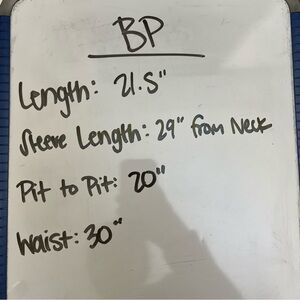 BP
Length: 21.5"
Sleeve Length: 29" from Neck
Pit to Pit: 20"
Waist: 30"